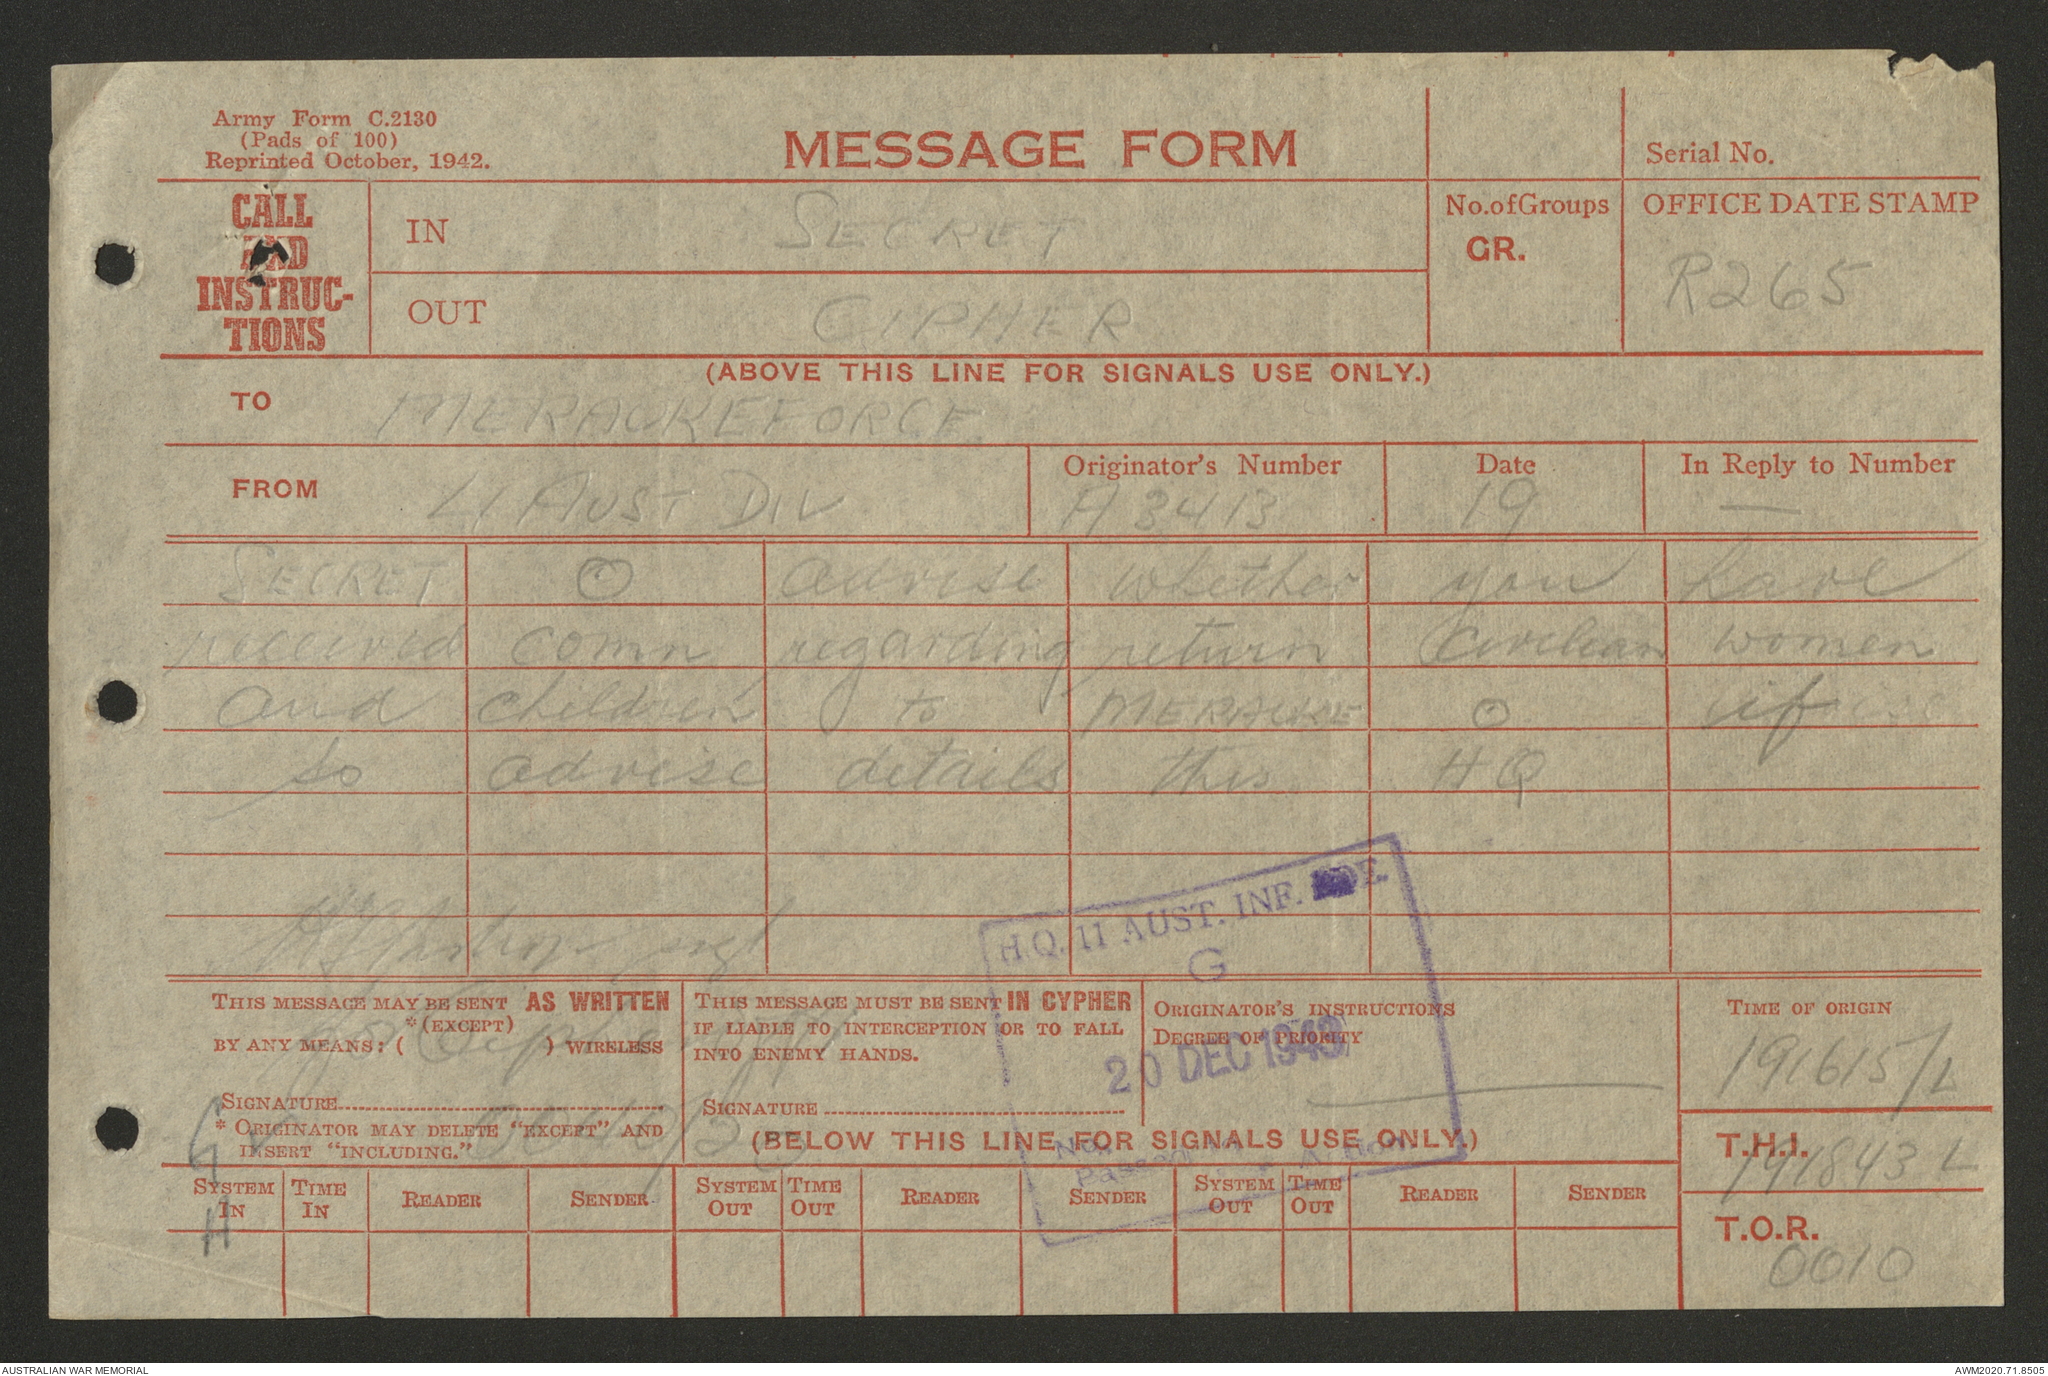 Army Form C.2130
(Pads of 100)
Reprinted October, 1942.
MESSAGE FORM
Serial No.
CALL AND INSTRUC-TIONS
IN SECRET
OUT CIPHER
No. of Groups
GR.
OFFICE DATE STAMP
R265
(ABOVE THIS LINE FOR SIGNALS USE ONLY.)
TO MERAUKEFORCE
FROM 11 AUST DIV
Originator's Number
A3413
Date
19
In Reply to Number
—
SECRET O advise whether you have
received comn regarding return civilian women
and children to MERAUKE O if
so advise details this HQ
H.Q. 11 AUST. INF. DE.
G
20 DEC 1943
No.
Passed Action
THIS MESSAGE MAY BE SENT AS WRITTEN
*(EXCEPT)
BY ANY MEANS: ( ) WIRELESS
SIGNATURE
* ORIGINATOR MAY DELETE "EXCEPT" AND
INSERT "INCLUDING."
THIS MESSAGE MUST BE SENT IN CYPHER
IF LIABLE TO INTERCEPTION OR TO FALL
INTO ENEMY HANDS.
SIGNATURE
ORIGINATOR'S INSTRUCTIONS
DEGREE OF PRIORITY
TIME OF ORIGIN
191615/L
(BELOW THIS LINE FOR SIGNALS USE ONLY.)
T.H.I.
191843L
T.O.R.
0010
SYSTEM IN TIME IN READER SENDER SYSTEM OUT TIME OUT READER SENDER SYSTEM OUT TIME OUT READER SENDER
G
H
AUSTRALIAN WAR MEMORIAL
AWM2020.71.8505